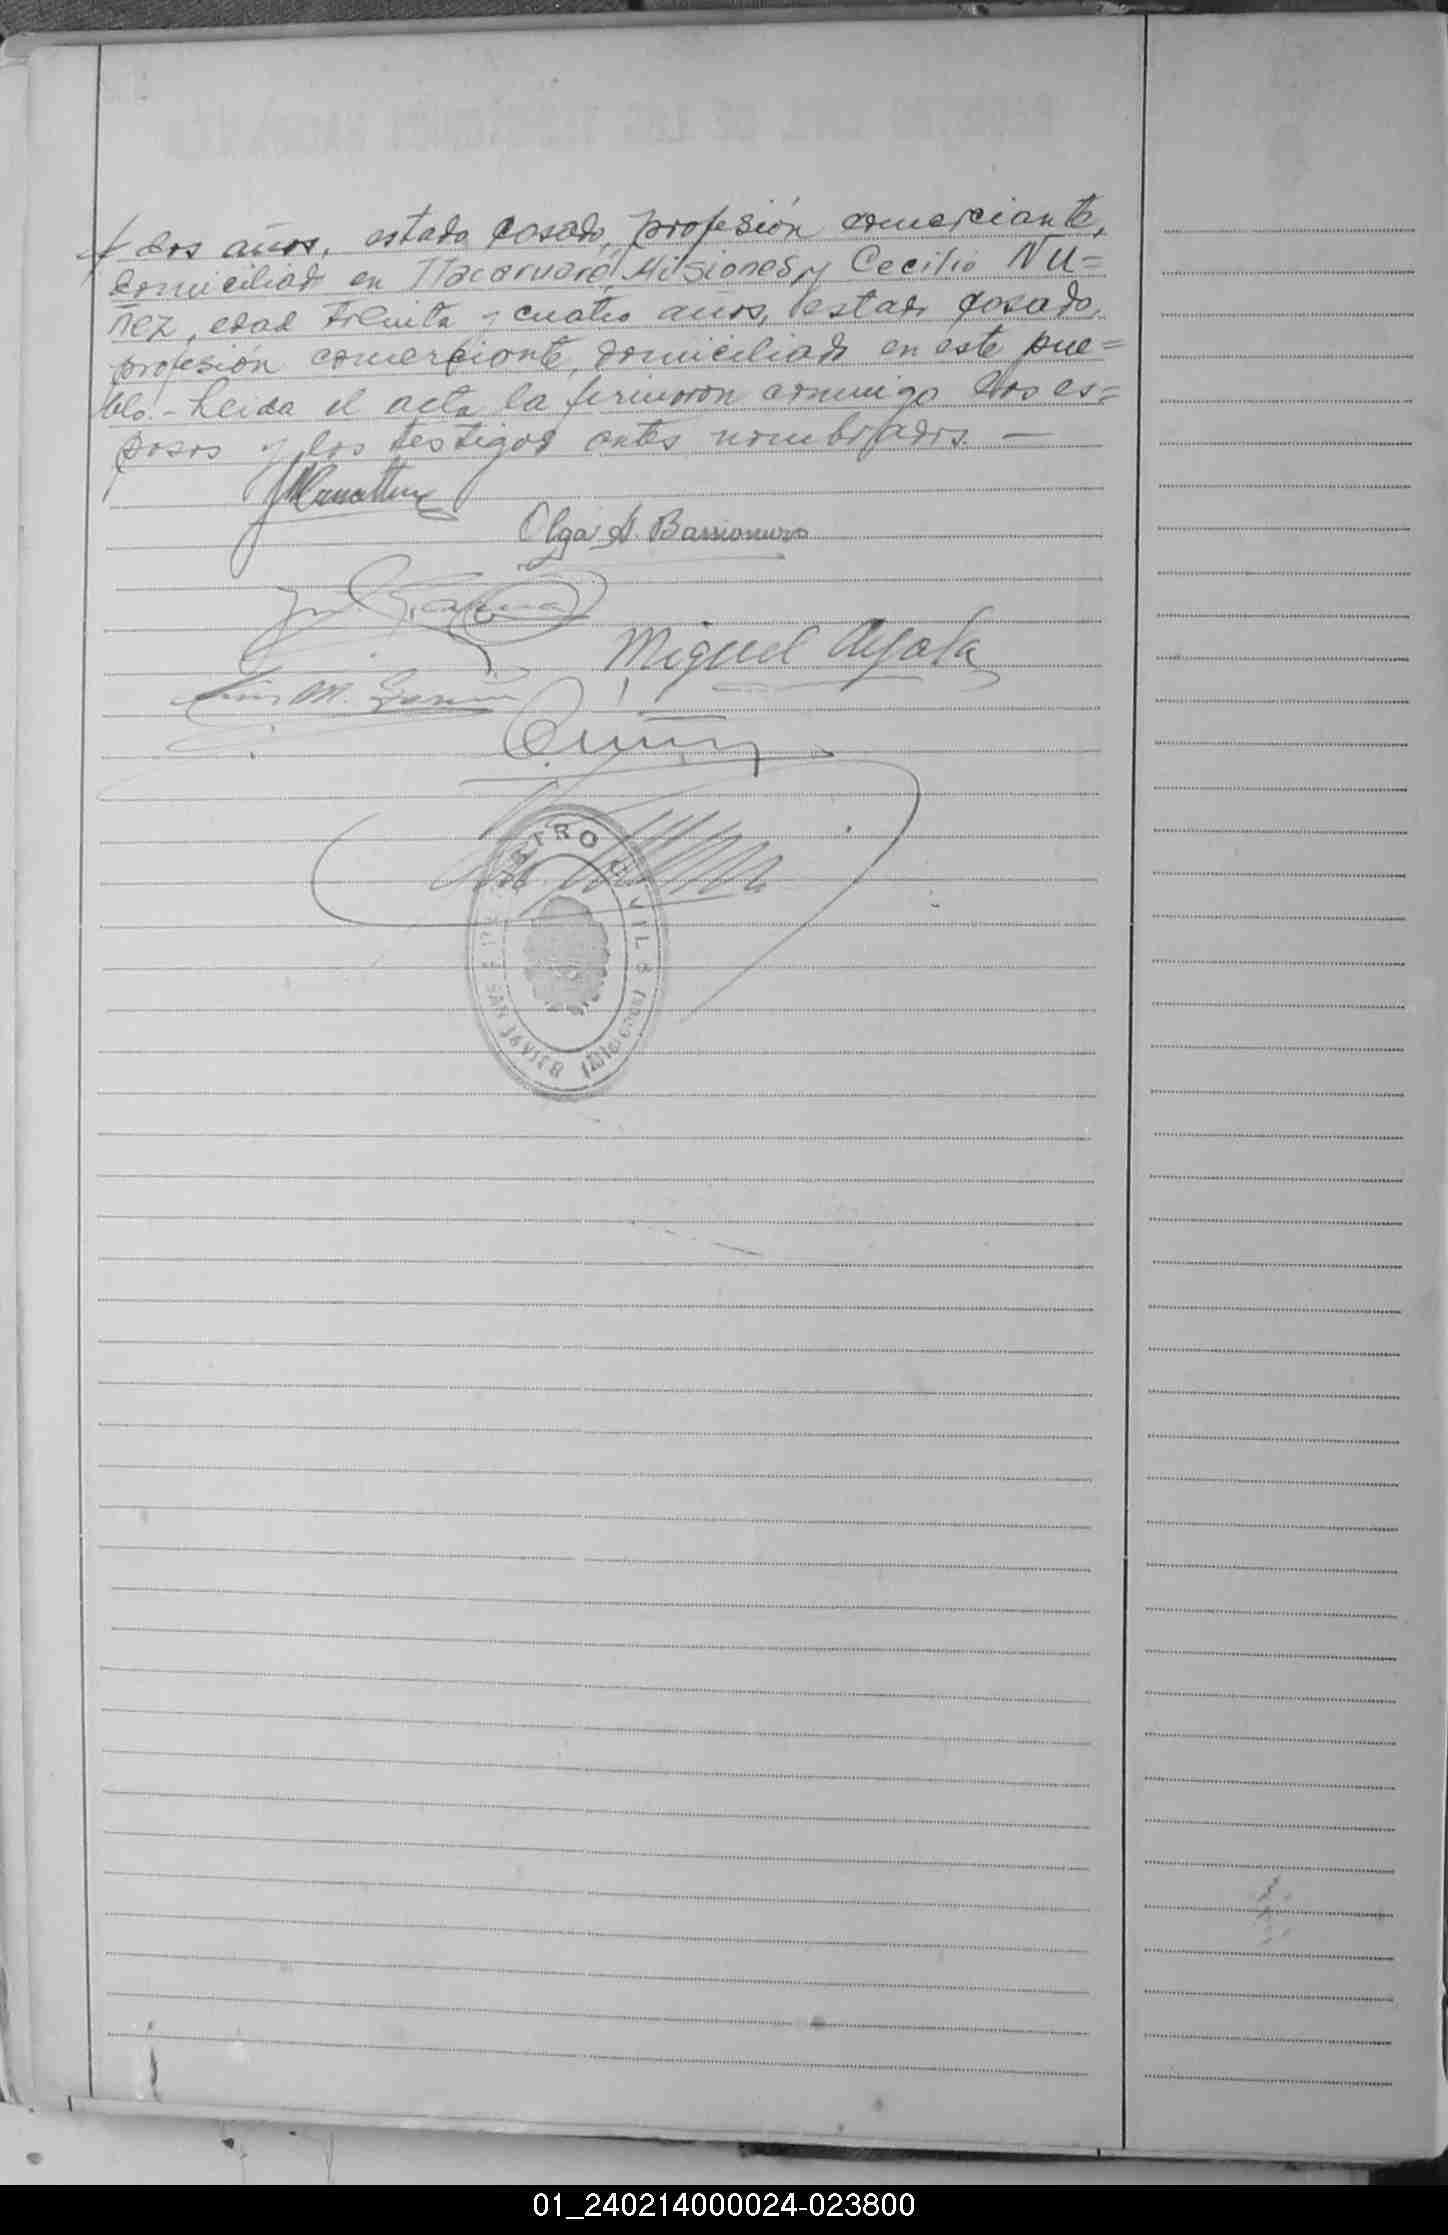 dos años, estado casado, profesión comerciante,
domiciliado en Itacaruaré, Misiones, y Cecilio Nu=
ñez, edad treinta y cuatro años, estado casado,
profesión comerciante, domiciliado en este pue=
blo.- Leida el acta la firmaron conmigo los es=
posos y los testigos antes nombrados. —
Olga A. Barrionuevo
Miguel Ayala
Luis M.
REGISTRO CIVIL
SAN JAVIER (Misiones)
01_240214000024-023800